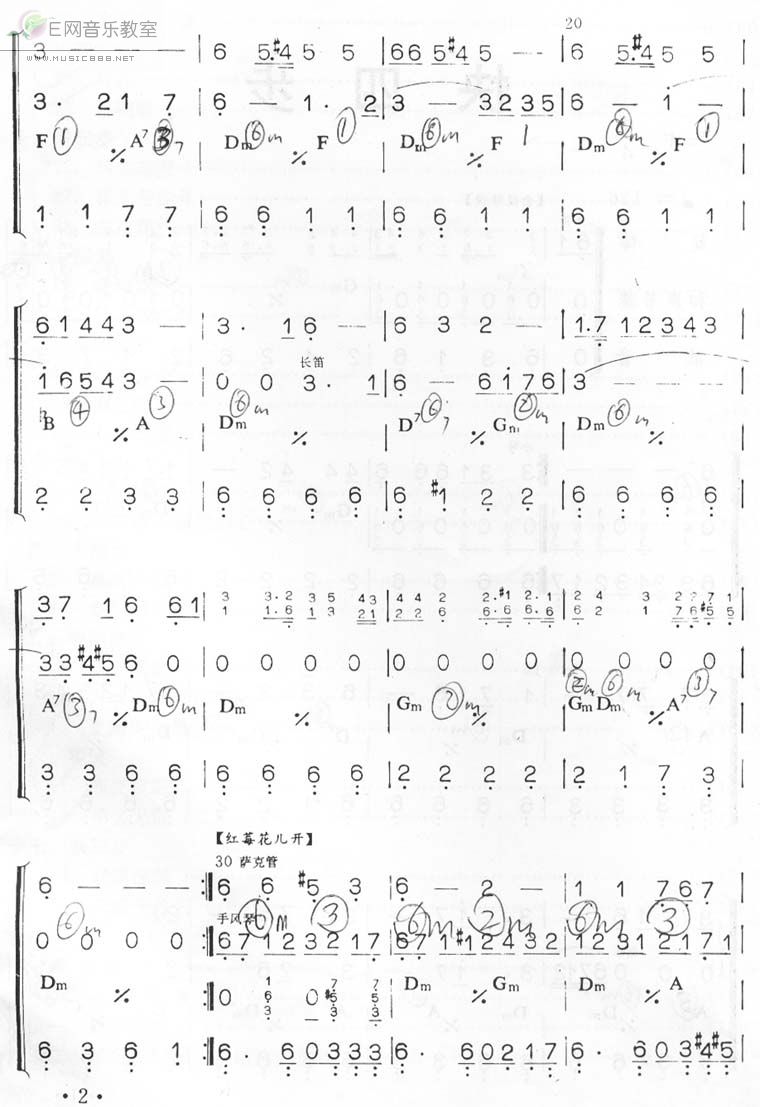 E网音乐教室
WWW.MUSIC888.NET
20
3 — — — | 6 5.#4 5 5 | 66 5#4 5 — — | 6 5.#4 5 5 |
3. 21 7 | 6 — 1. 2 | 3 — 32 35 | 6 — 1 — |
F ① A7 ③7 | Dm ⑥m F ① | Dm ⑥m F 1 | Dm ⑥m F ① |
1 1 7 7 | 6 6 1 1 | 6 6 1 1 | 6 6 1 1 |
61443 — — | 3. 16 — — | 6 3 2 — | 1.7 12 34 3 |
长笛
16543 — — | 0 0 3. 1 | 6 — 6176 | 3 — — — |
B ④ A ③ | Dm ⑥m | D7 ⑥7 Gm ②m | Dm ⑥m |
2 2 3 3 | 6 6 6 6 | 6 #1 2 2 | 6 6 6 6 |
37 16 61 | 3 3.2 35 43 | 44 2 2.#1 2.1 | 24 3 22 71
1 1.6 13 21 | 22 6 6.6 6.6 | 62 1 76 #55
33 #4#5 6 0 | 0 0 0 0 | 0 0 0 0 | 0 0 0 0 |
②m ⑥m ③
A7 ③7 Dm ⑥m | Dm | Gm ②m | Gm Dm A7 7
3 3 6 6 | 6 6 6 6 | 2 2 2 2 | 2 1 7 3 |
【红莓花儿开】
30 萨克管
6 — — — :‖ 6 6 #5 3 | 6 — 2 — | 1 1 767 |
手风琴 ⑥m ③ ⑥m ②m ⑥m ③
0 0 0 0 : 67123217 | 671#12432 | 12312171
⑥m
Dm : 0 1 6 3 0 7 #5 3 7 5 3 | Dm Gm | Dm A |
6 3 6 1 : 6. 60333 | 6. 60217 | 6. 603#4#5 |
·2·